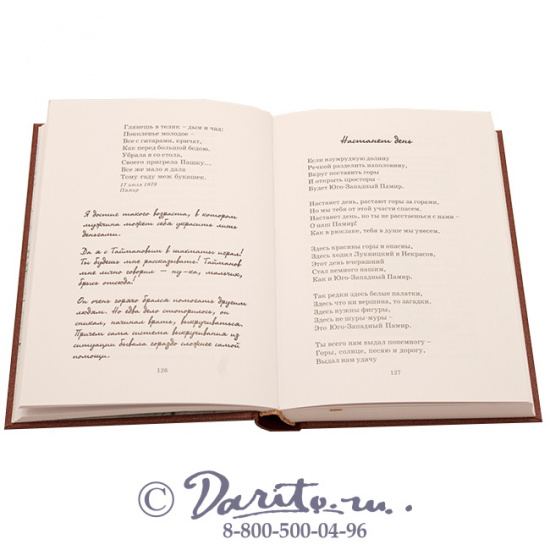 Глянешь в телик – дым и чад:
Поколенье молодое –
Все с гитарами, кричат,
Как перед большой бедою,
Убрала я со стола,
Своего пригрела Пашку...
Все же мало я дала
Тому гаду меж букашек.
17 июля 1979
Памир
Я достиг такого возраста, в котором
мужчина может себя украсить лишь
деньгами.
Да я с Таймановым в шахматы играл!
Ты будешь мне рассказывать! Тайманов
мне лично говорил – ну-ка, мальчик,
брысь отсюда!
Он очень горячо брался помогать другим
людям. Но едва дело стопорилось, он
сникал, начинал врать, выкручиваться.
Причем сама система выкручивания из
ситуации бывала гораздо сложнее самой
помощи.
126
Настанет день
Если изумрудную долину
Речкой разделить наполовину,
Вкруг поставить горы
И открыть просторы –
Будет Юго-Западный Памир.
Настанет день, растают горы за горами,
Но мы тебя от этой участи спасем.
Настанет день, но ты не расстанешься с нами –
О наш Памир!
Как в рюкзаке, тебя в душе мы унесем.
Здесь красивы горы и опасны,
Здесь ходил Лукницкий и Некрасов,
Этот день вчерашний
Стал немного нашим,
Как и Юго-Западный Памир.
Так редки здесь белые палатки,
Здесь что ни вершина, то загадки.
Здесь нужны фигуры,
Здесь не шуры-муры –
Это Юго-Западный Памир.
Ты всего нам выдал понемногу –
Горы, солнце, песню и дорогу,
Выдал нам удачу
127
© Darito.ru..
8-800-500-04-96